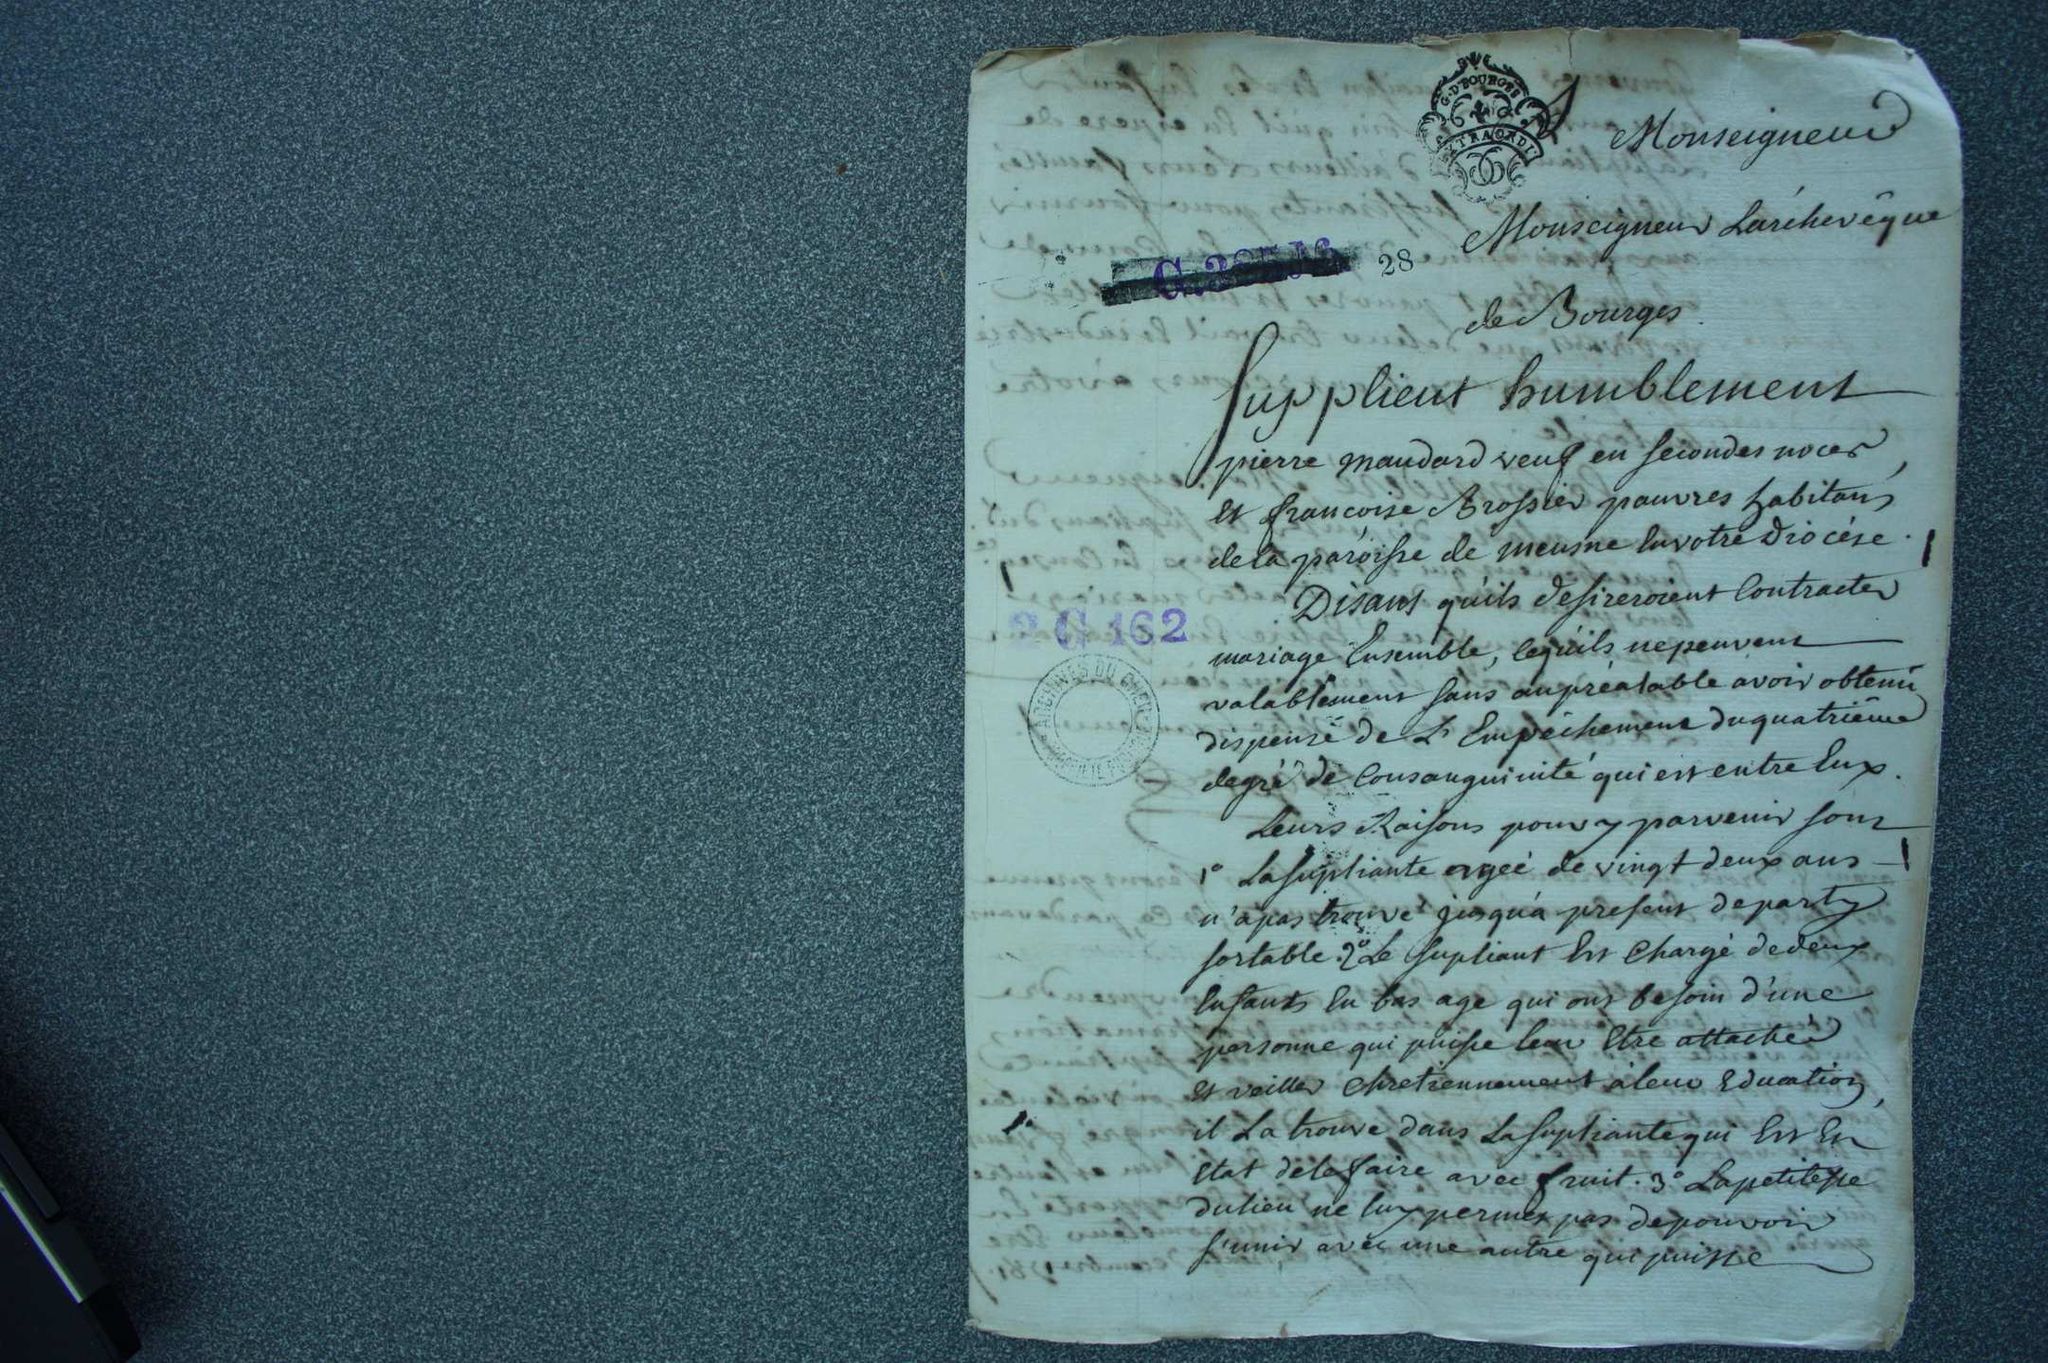 G. D. BOURGES
EXTRAORDI
Monseigneur
Monseigneur Larchevêque
28
de Bourges.
Supplient humblement
pierre maudard veuf en secondes noces,
Et francoise Brossier pauvres habitans
de la paroisse de meusne En votre Diocése.
Disans qu'ils desireroient Contracter
mariage Ensemble, ce qu'ils ne peuvent
valablement sans aupréalable avoir obtenu
dispense de L'Empêchement du quatriême
degré de Consanguinité qui est entre Eux.
Leurs Raisons pour y parvenir sont
1° La supliante agée de vingt deux ans
n'a pas trouvé jusqu'a present de party
sortable. 2° Le supliant Est Chargé de deux
Enfants En bas age qui ont besoin d'une
personne qui puisse leur Etre attachée
Et veiller Chretiennement à leur Education,
il La trouve dans La supliante qui Est En
Etat de le faire avec fruit. 3° La petitesse
du lieu ne luy permet pas de pouvoir
s'unir avec une autre qui puisse
2 G 162
ARCHIVES DU CHER